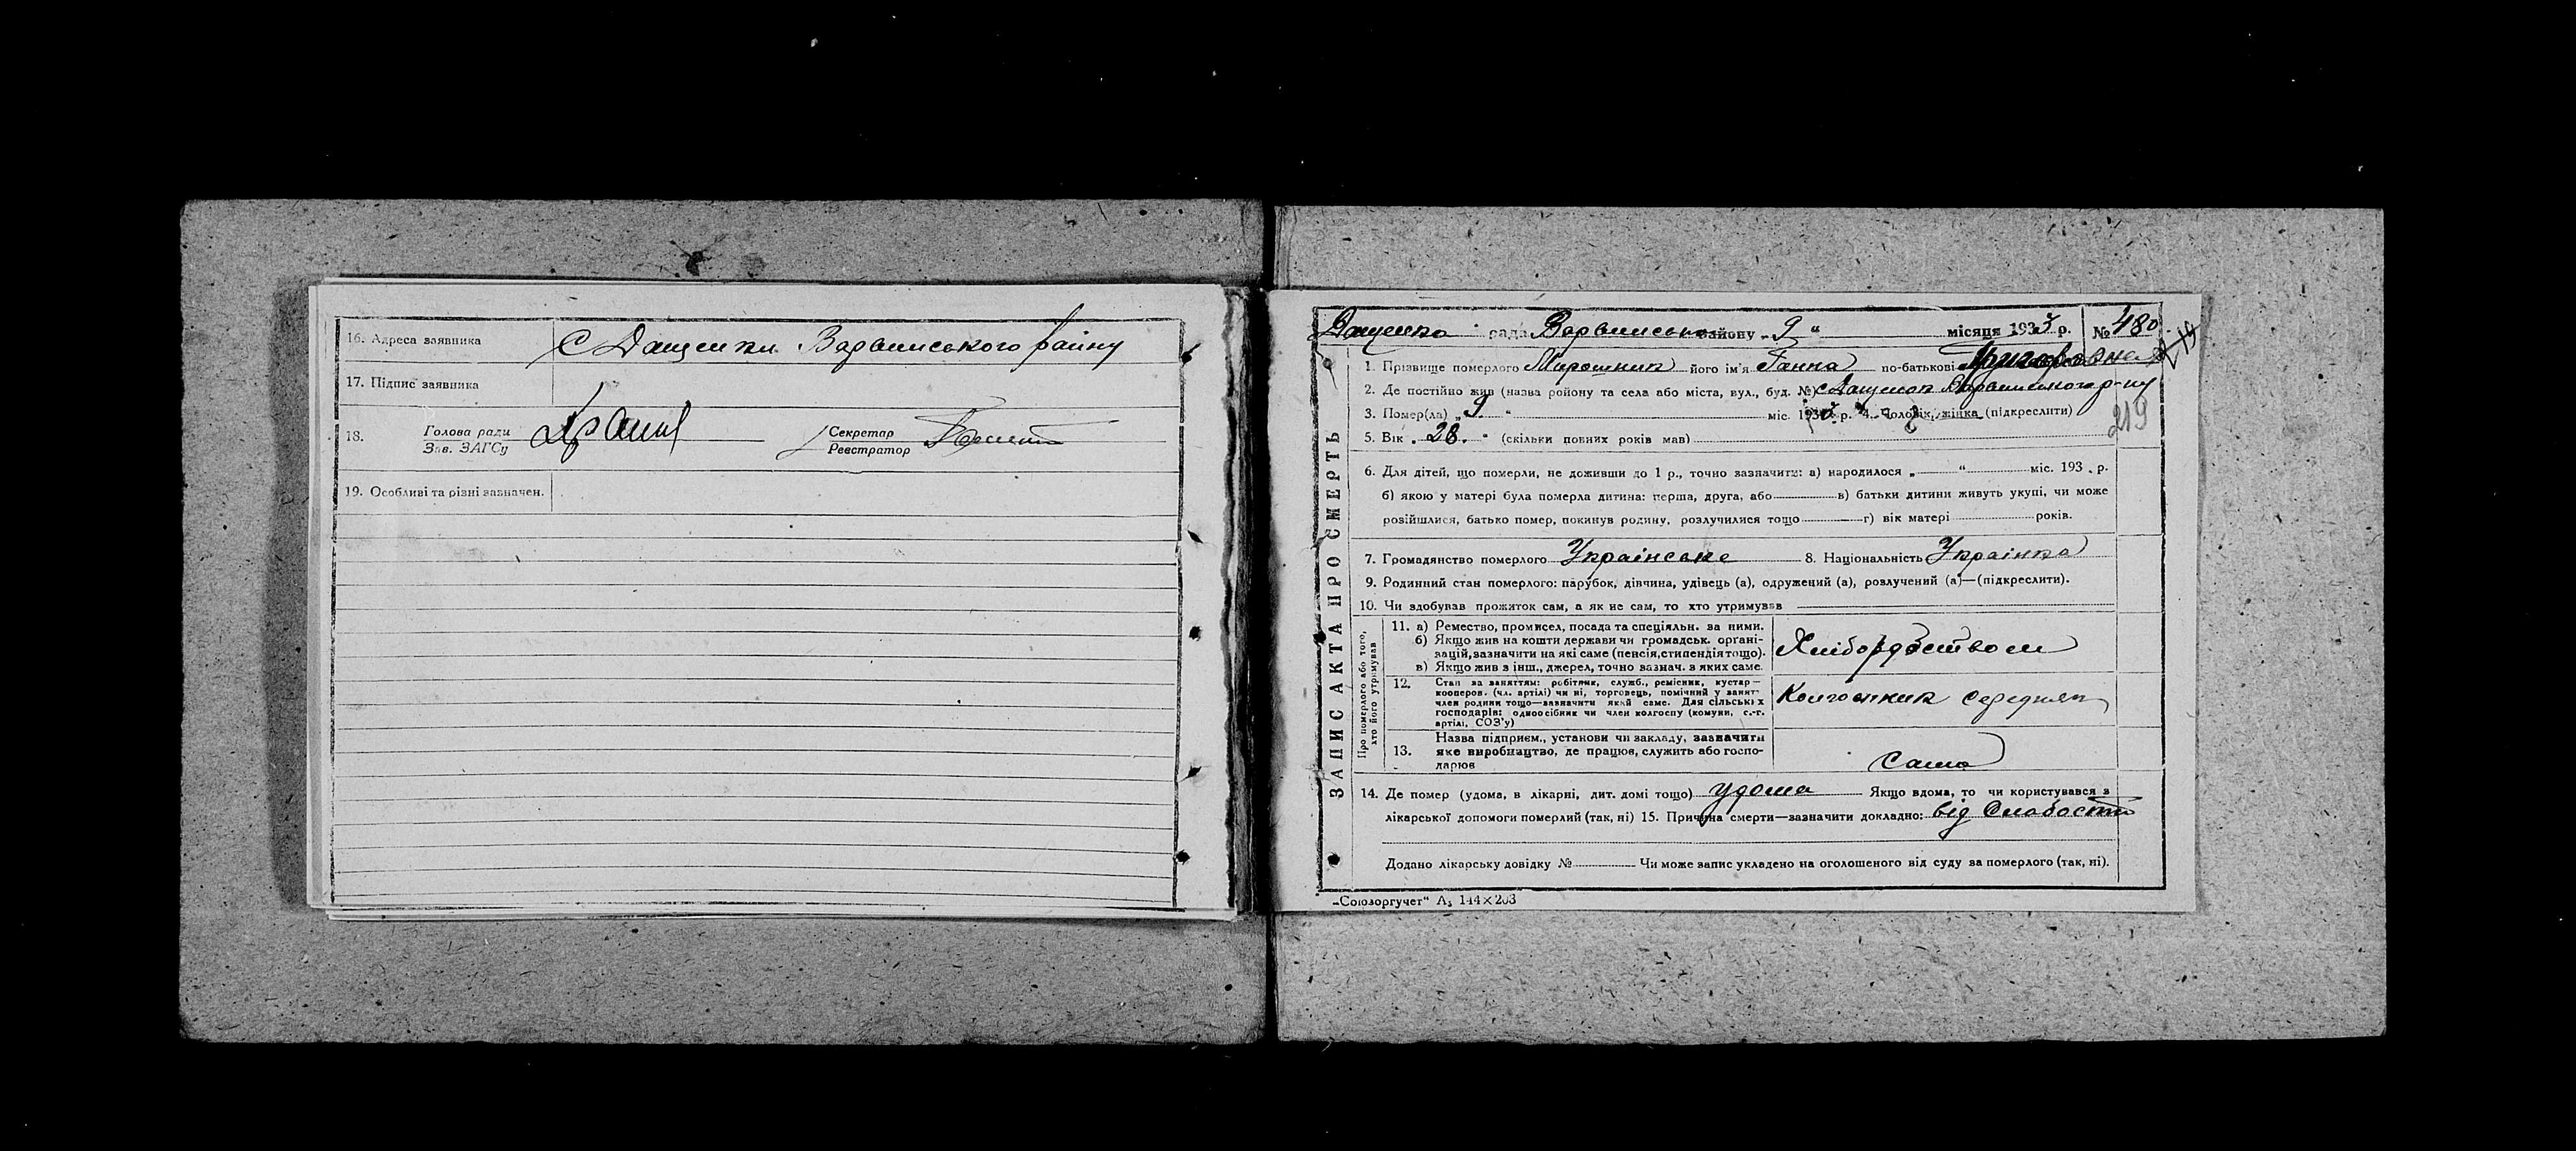 16. Адреса заявника С Дащенки Варвинського району
17. Підпис заявника
18. Голова ради
Зав. ЗАГСу
Секретар
Реєстратор
19. Особливі та різні зазначен.
Дащенко рада Варвинського району „ 9 “ місяця 1933 р. № 480
219
ЗАПИС АКТА ПРО СМЕРТЬ
1. Прізвище померлого Мирошник його ім'я Ганна по-батькові Григоровна
2. Де постійно жив (назва ройону та села або міста, вул., буд. №) с Дащенк Варвинського р-ну
3. Помер(ла) „ 9 “ міс. 1933 р. 4. Чоловік, жінка (підкреслити)
219
5. Вік „ 28 “ (скільки повних років мав)
6. Для дітей, що померли, не доживши до 1 р., точно зазначити: а) народилося „ “ міс. 193 . р.
б) якою у матері була померла дитина: перша, друга, або в) батьки дитини живуть укупі, чи може
розійшлися, батько помер, покинув родину, розлучилися тощо г) вік матері років.
7. Громадянство померлого Українське 8. Національність Українка
9. Родинний стан померлого: парубок, дівчина, удівець (а), одружений (а), розлучений (а)—(підкреслити).
10. Чи здобував прожиток сам, а як не сам, то хто утримував
Про померлого або того,
хто його утримував
11. а) Ремество, промисел, посада та спеціяльн. за ними.
б) Якщо жив на кошти держави чи громадськ. органі-
зацій, зазначити на які саме (пенсія, стипендія тощо).
в) Якщо жив з інш., джерел, точно вазнач. з яких саме.
Хліборобством
12. Стан за заняттям: робітник, служб., ремісник, кустар—
кооперов. (чл. артілі) чи ні, торговець, помічний у занят-
член родини тощо—зазначити який саме. Для сільських
господарів: одноосібник чи член колгоспу (комуни, с.-г.
артілі, СОЗ'у)
Колгоспник середняк
13. Назва підприєм., установи чи закладу, зазначити
яке виробництво, де працює, служить або госпо-
дарює
Сама
14. Де помер (удома, в лікарні, дит. домі тощо) удома Якщо вдома, то чи користувався з
лікарської допомоги померлий (так, ні) 15. Причина смерти—зазначити докладно: від Слабости
Додано лікарську довідку № Чи може запис укладено на оголошеного від суду за померлого (так, ні).
„Союзоргучет“ А₅ 144×203